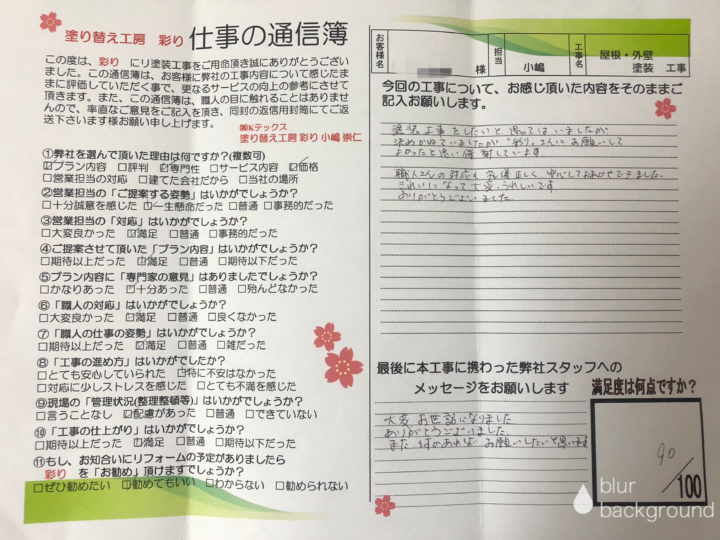 塗り替え工房 彩り 仕事の通信簿
この度は、彩り にリ塗装工事をご用命頂き誠にありがとうござい
ました。この通信簿は、お客様に弊社の工事内容について感じたま
まに評価していただく事で、更なるサービスの向上の参考にさせて
頂きます。また、この通信簿は、職人の目に触れることはありませ
んので、率直なご意見をご記入を頂き、同封の返信用封筒にてご返
送下さいます様お願い申し上げます。
㈱Kテックス
塗り替え工房 彩り 小嶋 崇仁
①弊社を選んで頂いた理由は何ですか?(複数可)
☑プラン内容 □評判 ☑専門性 □サービス内容 ☑価格
□営業担当の対応 □建てた会社だから □当社の場所
②営業担当の「ご提案する姿勢」はいかがでしょうか?
□十分誠意を感じた ☑一生懸命だった □普通 □事務的だった
③営業担当の「対応」はいかがでしょうか?
□大変良かった ☑満足 □普通 □事務的だった
④ご提案させて頂いた「プラン内容」はいかがでしょうか?
□期待以上だった ☑満足 □普通 □期待以下だった
⑤プラン内容に「専門家の意見」はありましたでしょうか?
□かなりあった ☑十分あった □普通 □殆んどなかった
⑥「職人の対応」はいかがでしょうか?
□大変良かった ☑満足 □普通 □良くなかった
⑦「職人の仕事の姿勢」はいかがでしょうか?
□期待以上だった ☑満足 □普通 □雑だった
⑧「工事の進め方」はいかがでしたか?
□とても安心していられた ☑特に不安はなかった
□対応に少しストレスを感じた □とても不満を感じた
⑨現場の「管理状況(整理整頓等)」はいかがでしょうか?
□言うことなし ☑配慮があった □普通 □できていない
⑩「工事の仕上がり」はいかがでしょうか?
□期待以上だった ☑満足 □普通 □期待以下だった
⑪もし、お知合いにリフォームの予定がありましたら
彩り を「お勧め」頂けますでしょうか?
□ぜひ勧めたい ☑勧めてもいい □わからない □勧められない
お客様名 様 担当 小嶋 工事名 屋根・外壁
塗装 工事
今回の工事について、お感じ頂いた内容をそのままご
記入お願いします。
塗装工事をしたいと思ってはいましたが
決めかねていましたが"彩り"さんにお願いして
よかったと思い感謝しています
職人さんの対応も礼儀正しく安心しておまかせできました。
きれいになって大変うれしいです
ありがとうございました。
最後に本工事に携わった弊社スタッフへの
メッセージをお願いします
大変お世話になりました
ありがとうございました
また何かあればお願いしたいと思います
満足度は何点ですか?
90/100
blur
background